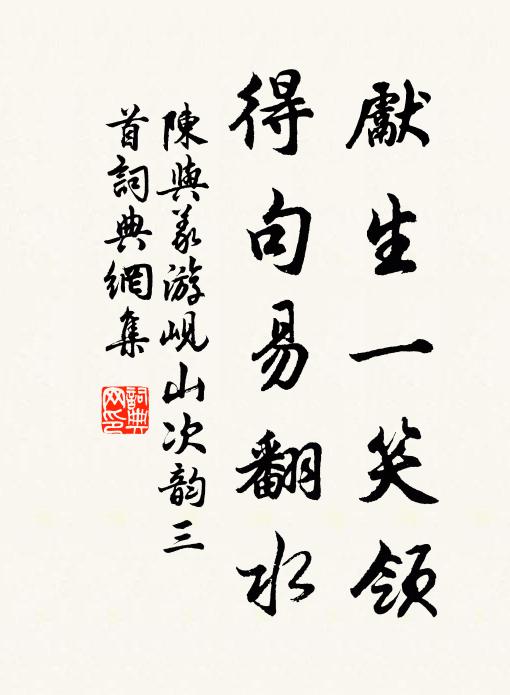 獻生一笑領
得句易翻水
陳與義游峴山次韵三
首詞典網集
詞典
网印